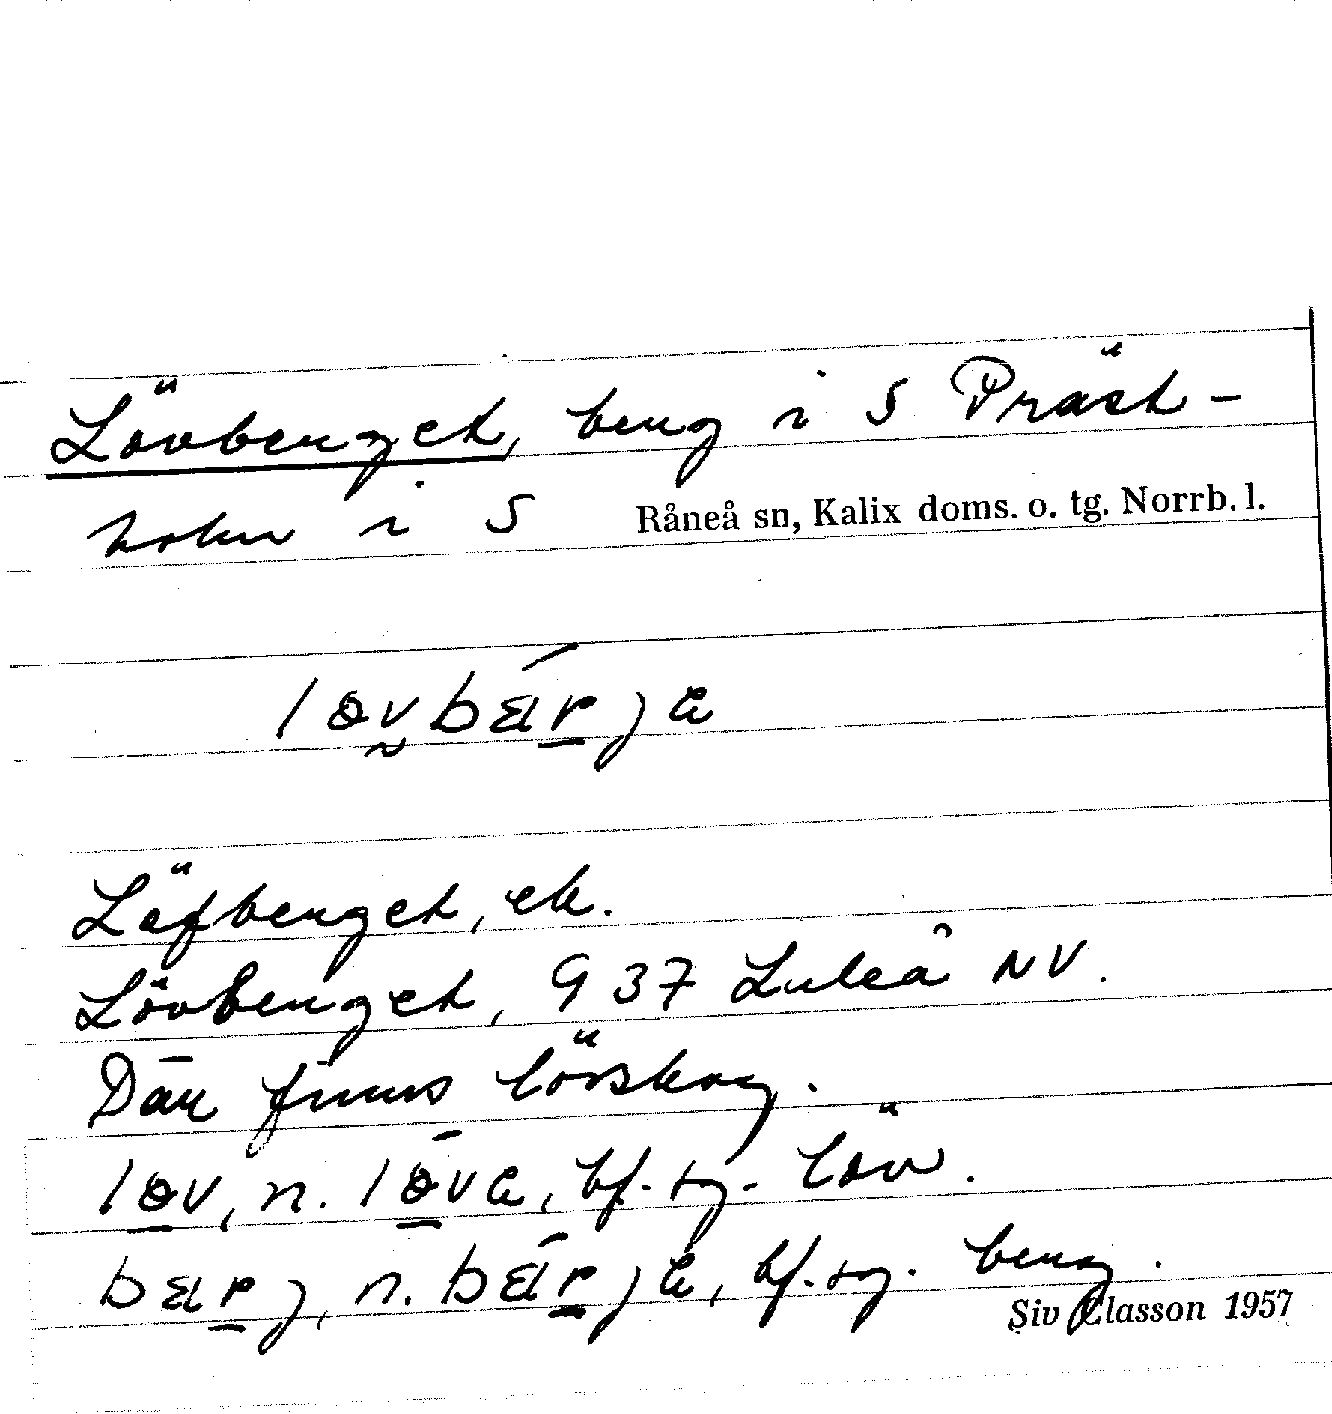 Lövberget, berg i S Präst-
holm i S Råneå sn, Kalix doms. o. tg. Norrb. l.
løvbærje
Löfberget, ek.
Lövberget, G 37 Luleå NV.
Där finns lövskog.
løv, n. løve, bf. sg. löv.
bærj, n. bærje, bf. sg. berg.
Siv Classon 1957